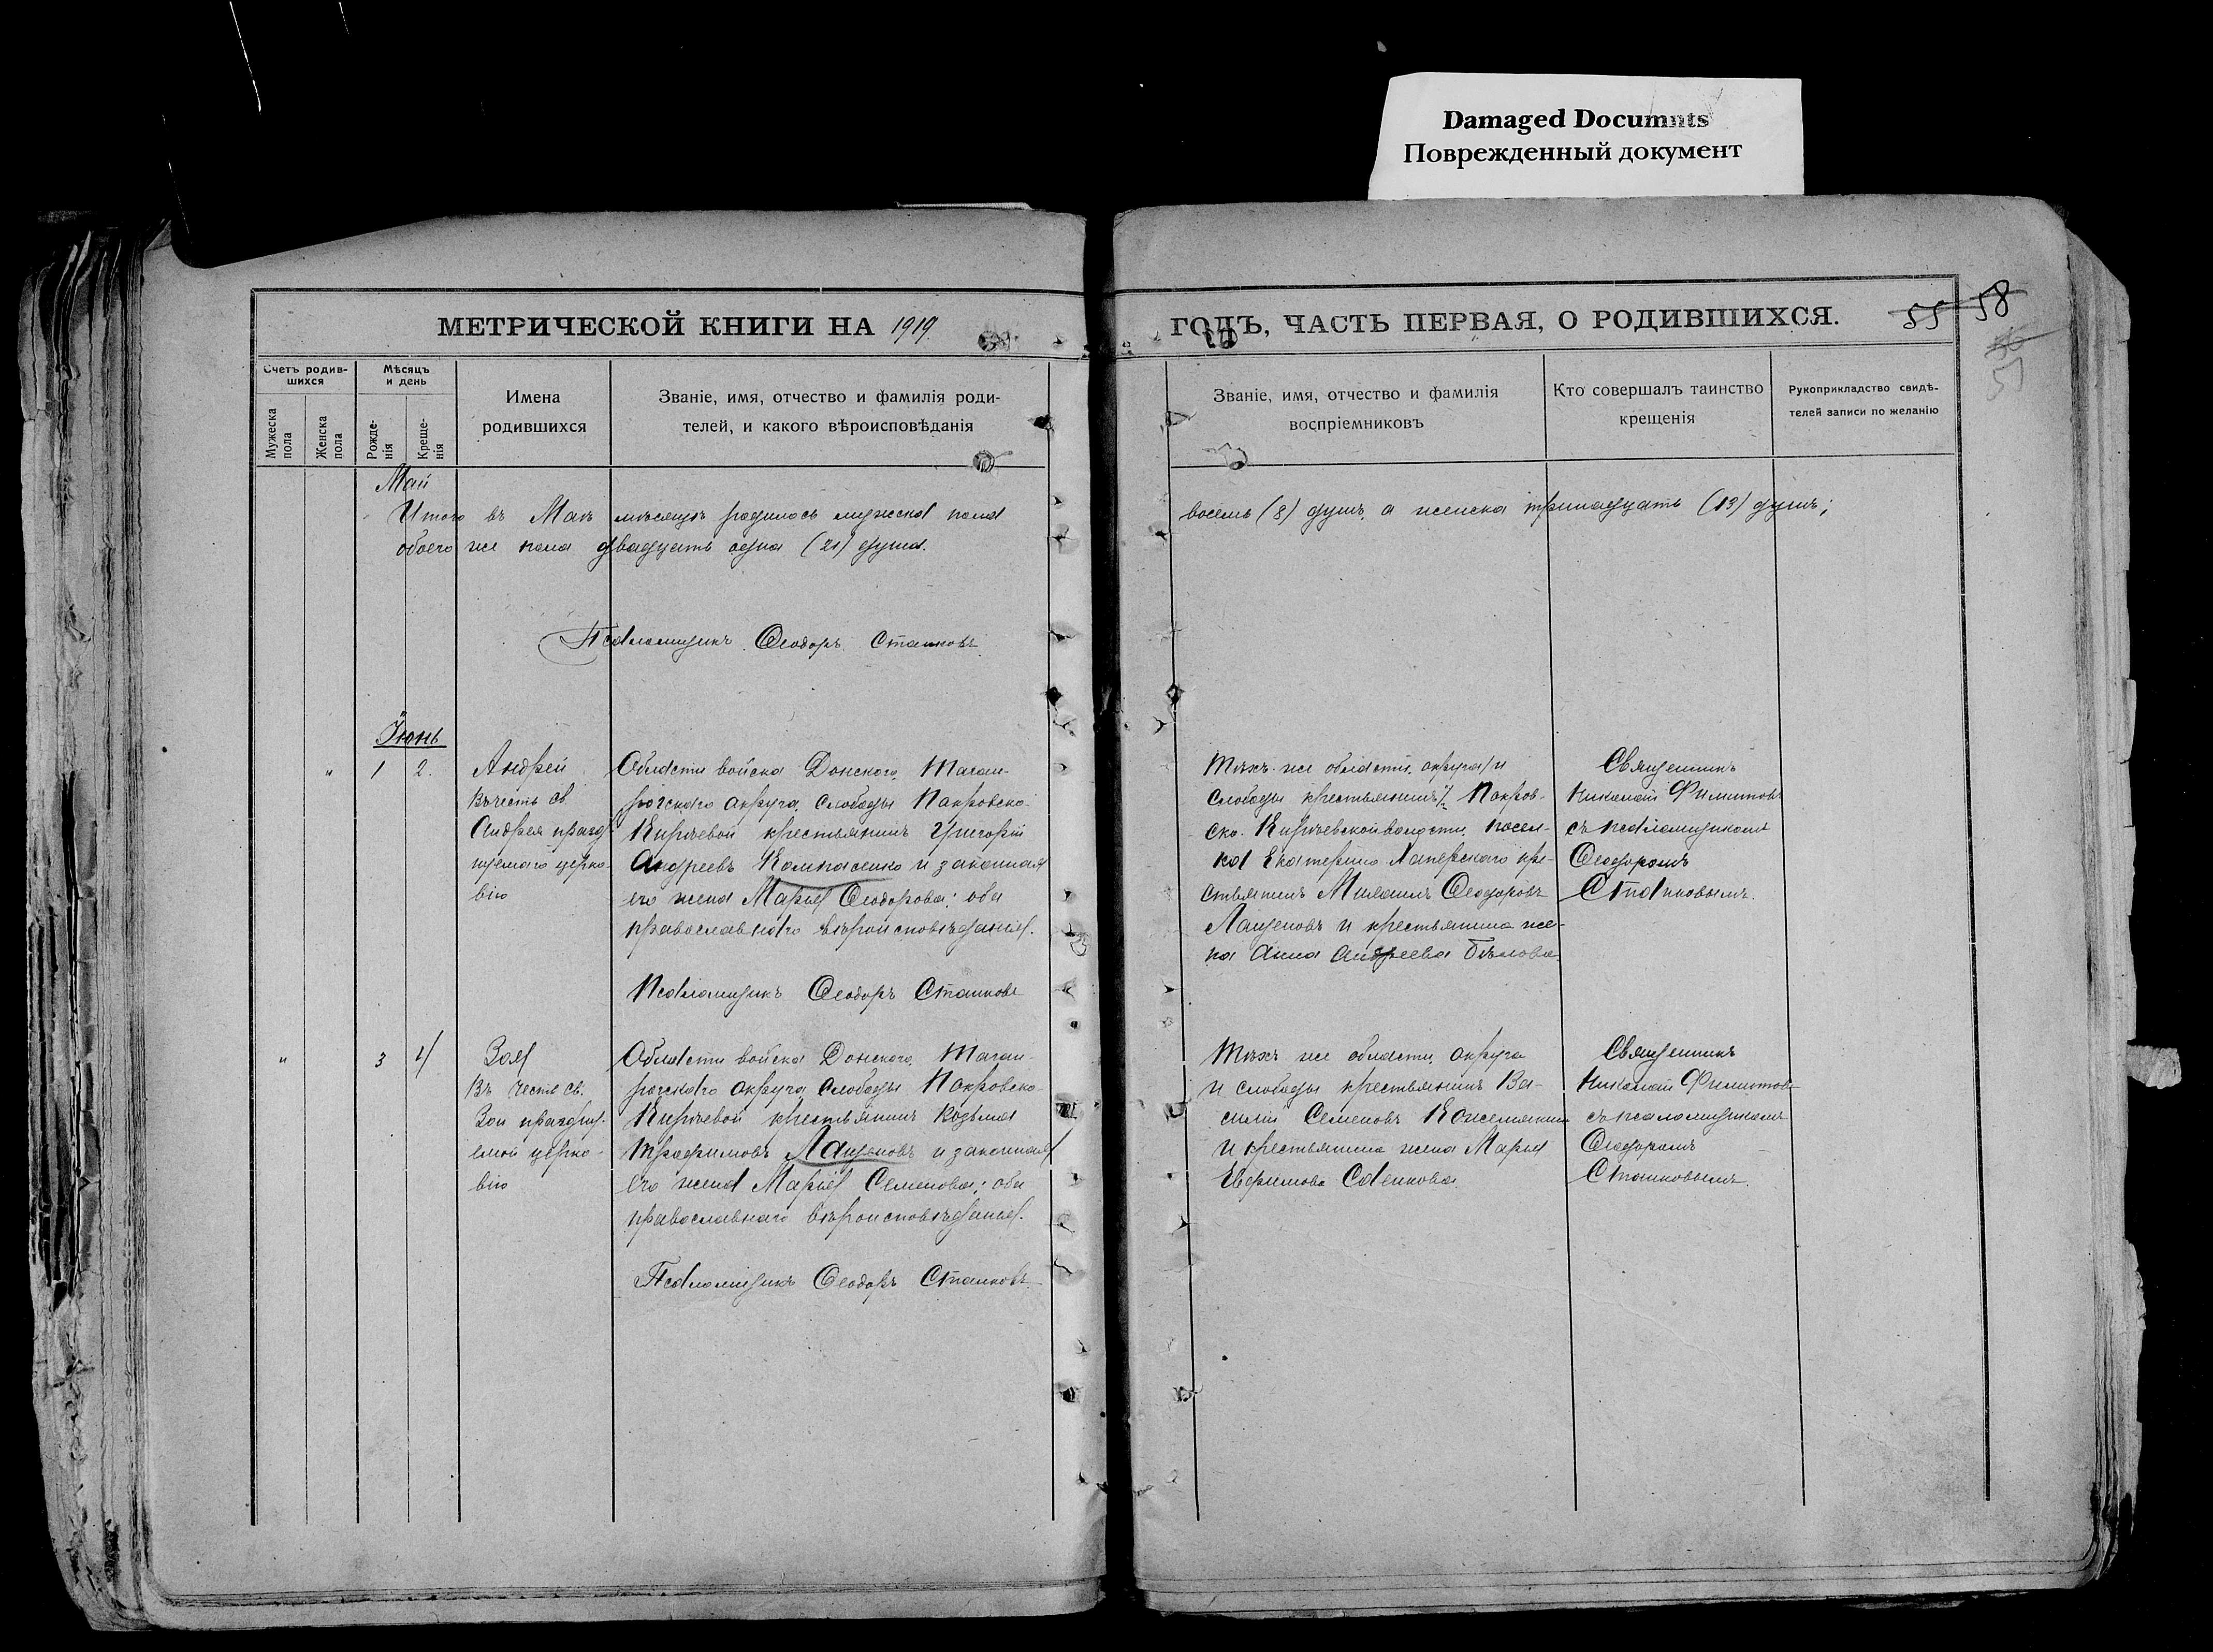 Damaged Documnts
Поврежденный документ
МЕТРИЧЕСКОЙ КНИГИ НА 1919
ГОДЪ, ЧАСТЬ ПЕРВАЯ, О РОДИВШИХСЯ.
55 58
57
Счетъ родив-
шихся
Мужеска
пола
Женска
пола
Мѣсяцъ
и день
Рожде-
нія
Креще-
нія
Имена
родившихся
Званіе, имя, отчество и фамилія роди-
телей, и какого вѣроисповѣданія
Званіе, имя, отчество и фамилія
воспріемниковъ
Кто совершалъ таинство
крещенія
Рукоприкладство свидѣ-
телей записи по желанію
Май
Итого въ Маѣ мѣсяцѣ родилось мужска пола
восемь (8) душъ, а женска тринадцать (13) душъ;
обоего же пола двадцать одна (21) душа.
Псаломщикъ Ѳеодоръ Сташковъ
Іюнь
" 1 2.
Андрей
въ честь св.
Андрея празд-
нуемаго церко-
вію
Области войска Донского, Таган-
рогскаго округа, слободы Покровско-
Кирѣевой крестьянинъ Григорій
Андреевъ Компаненко и законная
его жена Марія Ѳеодорова; оба
православнаго вѣроисповѣданія.
Псаломщикъ Ѳеодоръ Сташковъ
Тѣхъ же области, округа и
слободы крестьянинъ Покров-
ско-Кирѣевской волости, посел-
ка Екатерино Хаперскаго кре-
стьянинъ Михаилъ Ѳеодоровъ
Лащеновъ и крестьянина же-
на Анна Андреева Бѣлова.
Священникъ
Николай Филитовъ
съ псаломщикомъ
Ѳеодоромъ
Сташковымъ.
" 3 4
Зоя
въ честь св.
Зои праздну-
емой церко-
вію
Области войска Донского, Таган-
рогскаго округа, слободы Покровско-
Кирѣевой крестьянинъ Козьма
Трофимовъ Лащеновъ и законная
его жена Марія Семенова; оба
православнаго вѣроисповѣданія.
Псаломщикъ Ѳеодоръ Сташковъ
Тѣхъ же области, округа
и слободы крестьянинъ Ва-
силій Семеновъ Кожемякинъ
и крестьянина жена Марья
Ефимова Саенкова.
Священникъ
Николай Филитовъ
съ псаломщикомъ
Ѳеодоромъ
Сташковымъ.